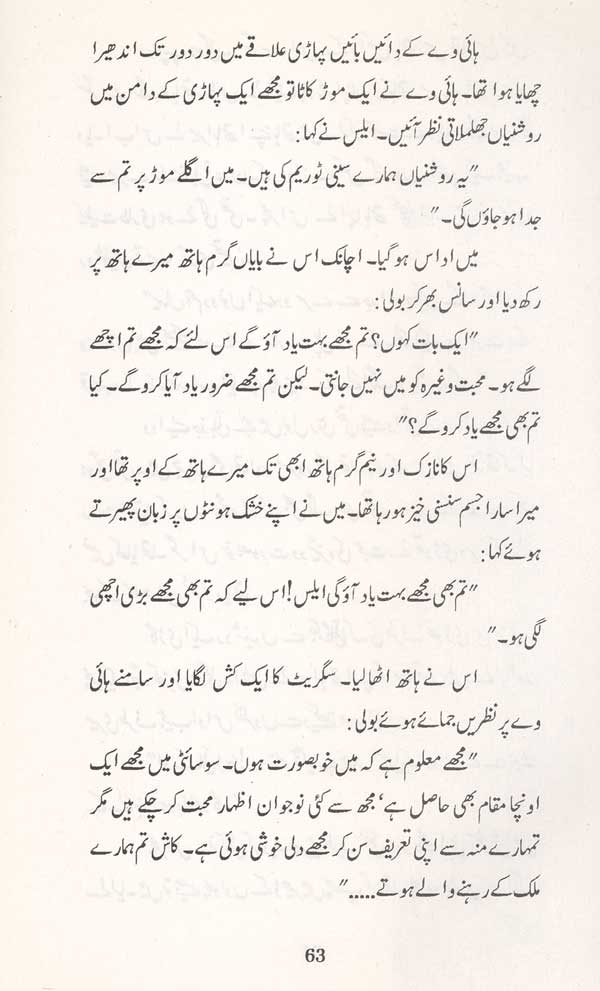 ہائی وے کے دائیں بائیں پہاڑی علاقے میں دور دور تک اندھیرا
چھایا ہوا تھا۔ ہائی وے نے ایک موڑ کاٹا تو مجھے ایک پہاڑی کے دامن میں
روشنیاں جھلملاتی نظر آئیں۔ ایلس نے کہا:
"یہ روشنیاں ہمارے سینی ٹوریم کی ہیں۔ میں اگلے موڑ پر تم سے
جدا ہو جاؤں گی۔"
میں اداس ہو گیا۔ اچانک اس نے بایاں گرم ہاتھ میرے ہاتھ پر
رکھ دیا اور سانس بھر کر بولی:
"ایک بات کہوں؟ تم مجھے بہت یاد آؤ گے اس لئے کہ مجھے تم اچھے
لگے ہو۔ محبت وغیرہ کو میں نہیں جانتی۔ لیکن تم مجھے ضرور یاد آیا کرو گے۔ کیا
تم بھی مجھے یاد کرو گے؟"
اس کا نازک اور نیم گرم ہاتھ ابھی تک میرے ہاتھ کے اوپر تھا اور
میرا سارا جسم سنسنی خیز ہو رہا تھا۔ میں نے اپنے خشک ہونٹوں پر زبان پھیرتے
ہوئے کہا:
"تم بھی مجھے بہت یاد آؤ گی ایلس! اس لیے کہ تم بھی مجھے بڑی اچھی
لگی ہو۔"
اس نے ہاتھ اٹھا لیا۔ سگریٹ کا ایک کش لگایا اور سامنے ہائی
وے پر نظریں جمائے ہوئے بولی:
"مجھے معلوم ہے کہ میں خوبصورت ہوں۔ سوسائٹی میں مجھے ایک
اونچا مقام بھی حاصل ہے، مجھ سے کئی نوجوان اظہار محبت کر چکے ہیں مگر
تمہارے منہ سے اپنی تعریف سن کر مجھے دلی خوشی ہوئی ہے۔ کاش تم ہمارے
ملک کے رہنے والے ہوتے....."
63